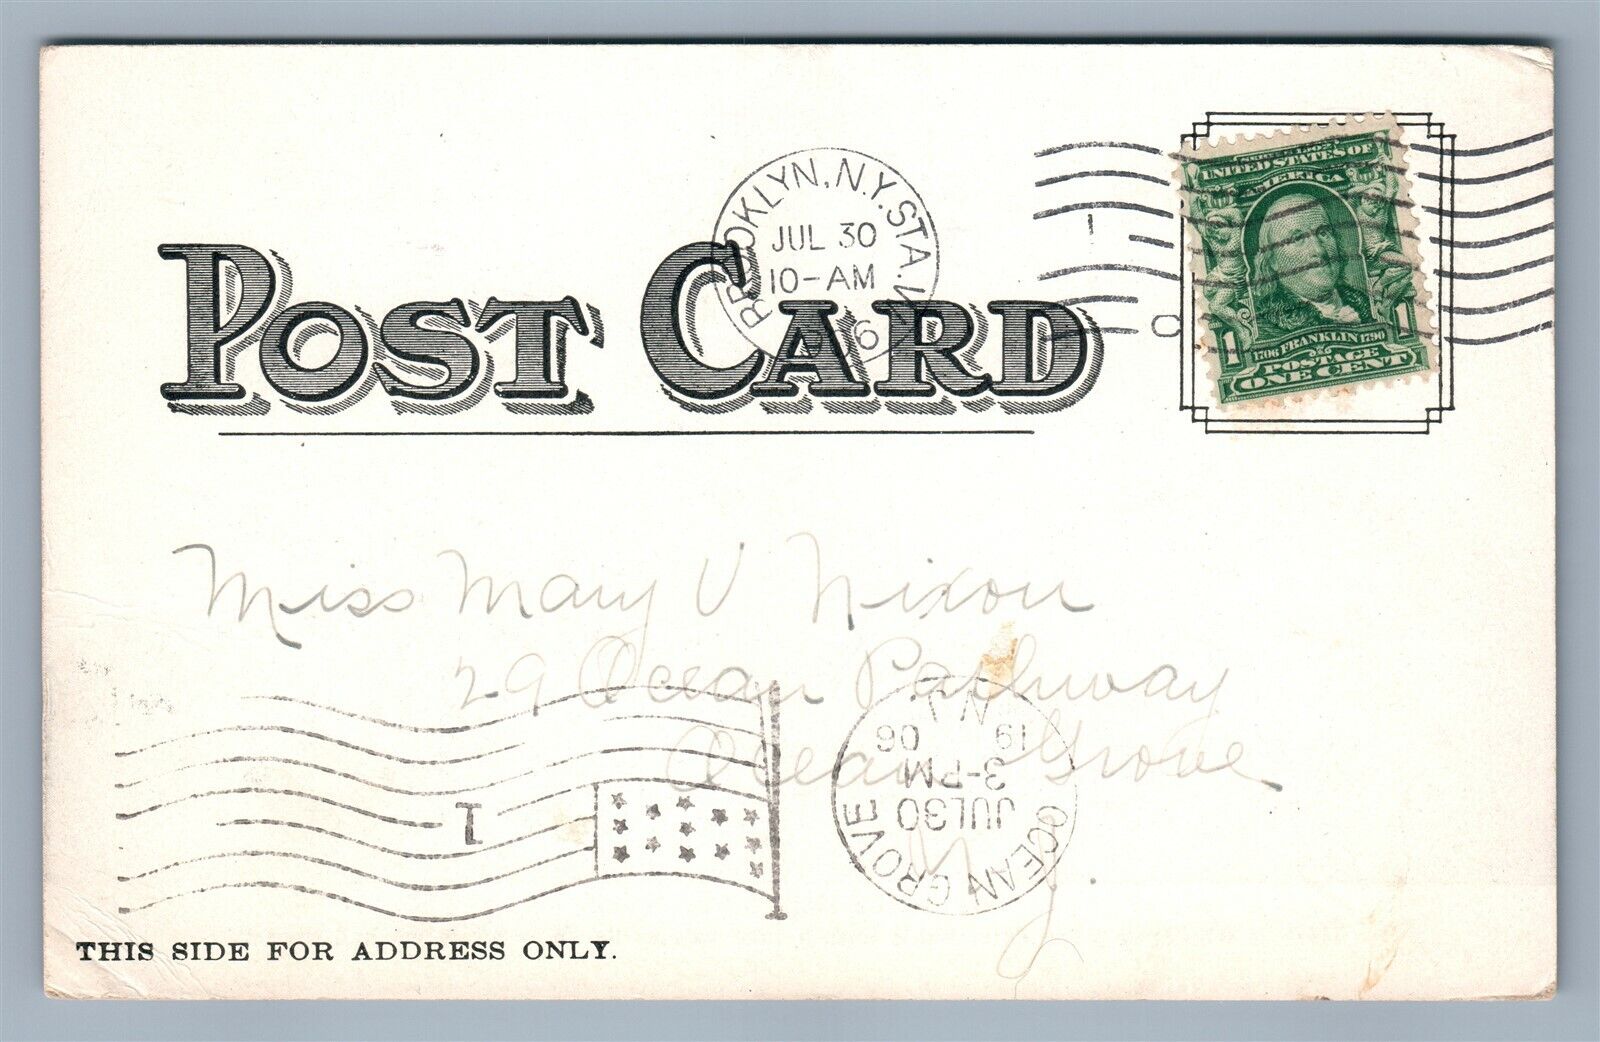 POST CARD
BROOKLYN, N.Y. STA. W.
JUL 30
10-AM
1
SERIES 1902
UNITED STATES OF
AMERICA
1706 FRANKLIN 1790
1 POSTAGE 1
ONE CENT
Miss Mary V Nixon
29 Ocean Pathway
Ocean Grove
N.J.
OCEAN GROVE N.J.
JUL 30
3-PM
19 06
1
THIS SIDE FOR ADDRESS ONLY.